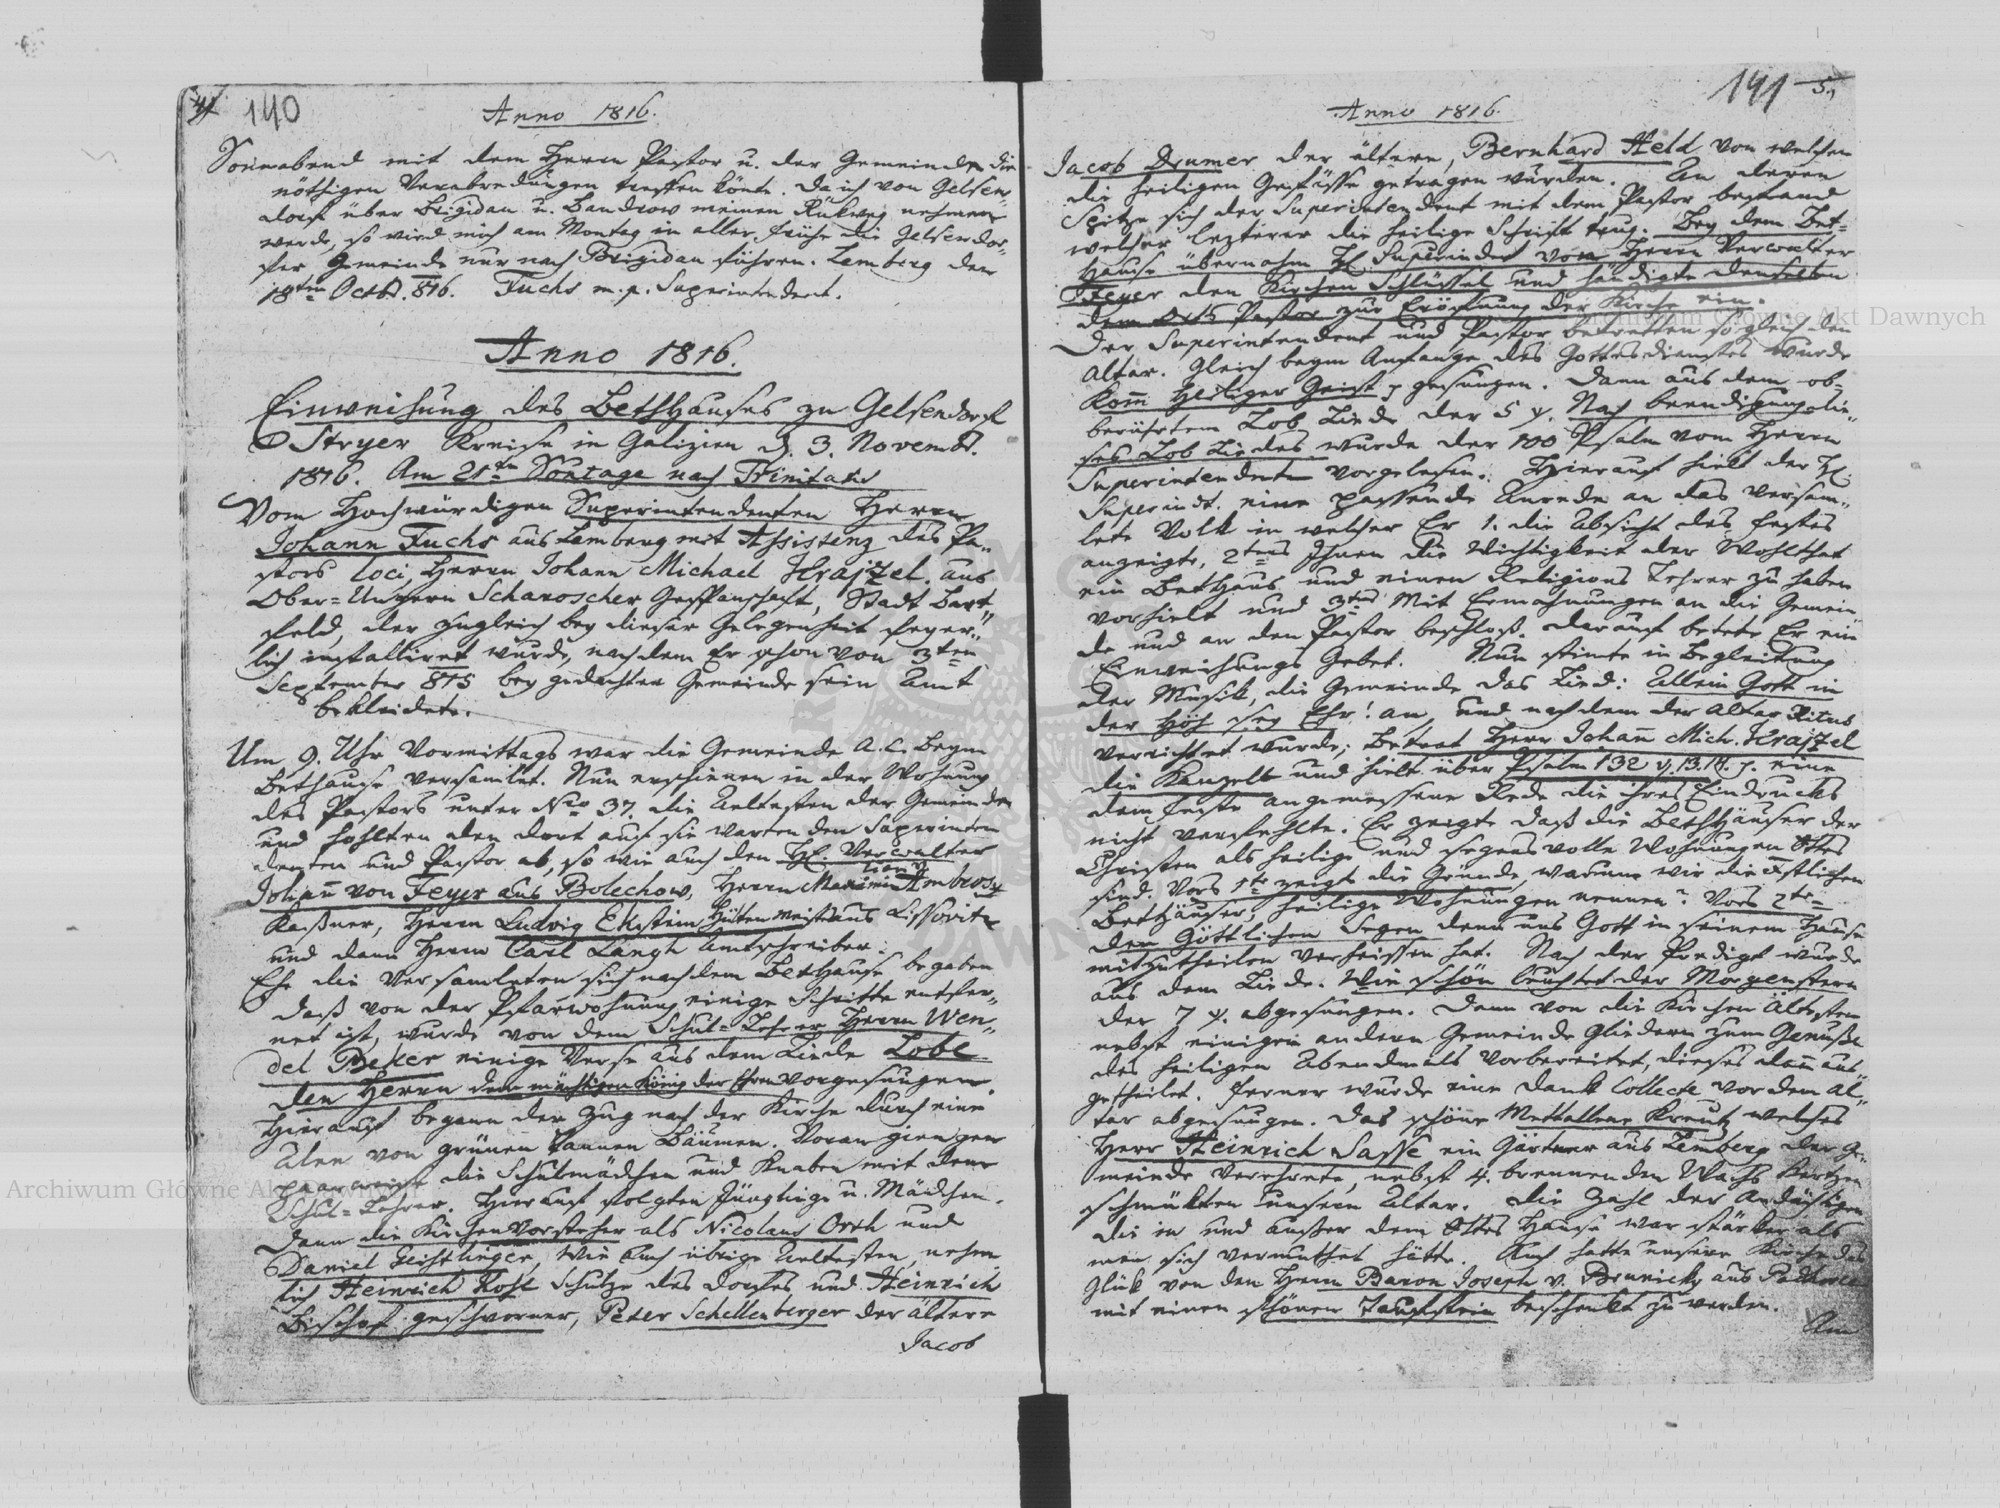 4
140
Anno 1816.
Sonnabend mit dem Herrn Pastor u. der Gemeinde die
nöthigen Verabredungen treffen könte. Da ich von Gelsen-
dorf über Brigidau u. Bandrow meinen Rükweg nehmen
werde, so wird mich am Montag in aller Frühe die Gelsendor-
fer Gemeinde nur nach Brigidau führen. Lemberg den
18ten Octbr. 816. Fuchs m. p. Superintendent.
Anno 1816.
Einweihung des Bethhauses zu Gelsendorf
Stryer Kreise in Galizien d. 3. Novembr.
1816. Am 21ten Sontage nach Trinitatis
Vom Hochwürdigen Superintendenten Herrn
Johann Fuchs aus Lemberg mit Assistenz des Pa-
stors loci, Herrn Johann Michael Krajzel aus
Ober-Ungern Scharoscher Gespanschaft, Stadt Bart-
feld, der zugleich bey dieser Gelegenheit feyer-
lich installiret wurde, nachdem Er schon von 3ten
September 815 bey gedachter Gemeinde sein Amt
bekleidete.
Um 9. Uhr Vormittags war die Gemeinde A. C. beym
Bethause versamlet. Nun erschienen in der Wohnung
des Pastors unter Nro 37. die Aeltesten der Gemeinde
und hohlten den dort auf sie wartenden Superinten
denten und Pastor ab, so wie auch den H. Verwalter
Johann von Feyer aus Bolechow, Herrn Maximilian v. Ambrosy
Kaßner, Herrn Ludvig Ekstein Hüttenmeister aus Lissovitz
und dann Herrn Carl Langh Amtschreiber.
Ehe die Versamleten sich nach dem Bethause begaben
daß von der Pfarwohnung einige Schritte entfer-
net ist, wurde von dem Schul-Lehrer Herrn Wen-
del Beker einige Verse aus dem Liede Lobe
den Herrn den mächtigen König der Ehren vorgesungen.
Hierauf begann der Zug nach der Kirche durch eine
Alee von grünen Tannen Bäumen. Voran giengen
paarweise die Schulmädchen und Knaben mit dem
Schul-Lehrer. Hierauf folgten Jünglinge u. Mädchen.
Dann die Kirchenvorsteher als Nicolaus Orth und
Daniel Geistlinger, wie auch übrige Aeltesten, nehm
lich Heinrich Rohl Schulze des Dorfes und Heinrich
Bischof geschworner, Peter Schellenberger der ältere
Jacob
141
5
Anno 1816.
Jacob Drumer der ältere, Bernhard Held von welchen
die heiligen Gefässe getragen wurden. An deren
Spitze sich der Superintendent mit dem Pastor befand
welcher lezterer die heilige Schrift trug. Bey dem Bet-
hause übernahm H. Superindet von Herrn Verwalter
Feyer den Kirchen Schlüssel und händigte denselben
dem Orts Pastor zur Eröfnung der Kirche ein.
Der Superintendent und Pastor betratten sogleich den
Altar. Gleich beym Anfange des Gottesdienstes wurde
Kom̄ Heiliger Geist gesungen. Dann aus dem ob-
berührtem Lob Liede der 5 V. Nach beendigung die-
ses Lob Liedes wurde der 100 Psalm vom Herrn
Superintendente vorgelesen. Hierauf hielt der H.
Superindt. eine passende Anrede an das versam-
lete Volk in welcher Er 1. die Absicht des Festes
anzeigte, 2tens Ihnen die Wichtigkeit der Wohlthat
ein Bethaus und einen Religions Lehrer zu haben
vorhielt und 3tens Mit Ermahnungen an die Gemein
de und an den Pastor beschloß. Darauf betete Er ein
Einweihungs Gebet. Nun stimte in Begleitung
der Musik, die Gemeinde das Lied: Allein Gott in
der Höh sey Ehr! an, und nachdem der Altar Ritus
verrichtet wurde; Betrat Herr Johan̄ Mich. Krajzel
die Kanzell und hielt über Psalm 132 V. 13. 14. eine
dem Feste angemessene Rede die ihres Eindrucks
nicht verfehlte. Er zeigte daß die Bethhäuser der
Christen als heilige und segensvolle Wohnungen Gottes
sind. Vors 1te zeigte die Gründe, warum wir die Xstlichen
Bethäuser, heilige Wohnungen nennen? Vors 2te
den Göttlichen Segen denn uns Gott in seinem Hause
mitzutheilen verheissen hat. Nach der Predigt wurde
aus dem Liede. Wie schön leuchtet der Morgenstern
der 7 V. abgesungen. Dann von die Kirchen Ältesten
nebst einigen andern Gemeinde Gliedern zum Genuße
des heiligen Abendmals vorbereitet, dieses dan̄ aus-
getheilet. Ferner wurde eine Dank Collecte vor dem Al-
tar abgesungen. Das schöne Mettallene Kreutz welches
Herr Heinrich Sasse ein Gärtner aus Lemberg der Ge-
meinde verehrete, nebst 4. brennenden Wachs Kertzen
schmükten unsern Altar. Die Zahl der Andächtigen
die in und ausser dem Gottes Hause war stärker als
man sich vermuthet hätte. Auch hatte unsere Kirche das
Glük von den Herrn Baron Joseph v. Brunicky aus Podhorce
mit einen schönen Taufstein beschenkt zu werden.
Am
Archiwum Główne Akt Dawnych
Archiwum Główne Akt Dawnych